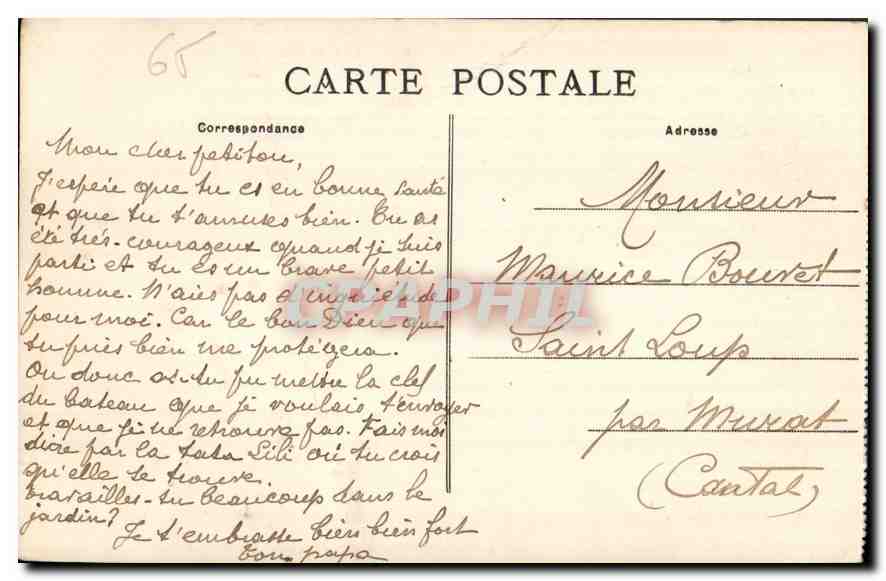 65
CARTE POSTALE
Correspondance
Mon cher petiton,
J'espère que tu es en bonne santé
et que tu t'amuses bien. Tu as
été très-courageux quand je suis
parti et tu es un brave petit
homme. N'aies pas d'inquiétude
pour moi. Car le bon Dieu que
tu pries bien me protégera.
Ou donc as-tu pu mettre la clef
du bateau que je voulais t'envoyer
et que je ne retrouve pas. Fais moi
dire par la tata Lili où tu crois
qu'elle se trouve.
travailles-tu beaucoup dans le
jardin?
Je t'embrasse bien bien fort
ton papa
Adresse
Monsieur
Maurice Bouvet
Saint Loup
par Murat
(Cantal)
CPAPHIL